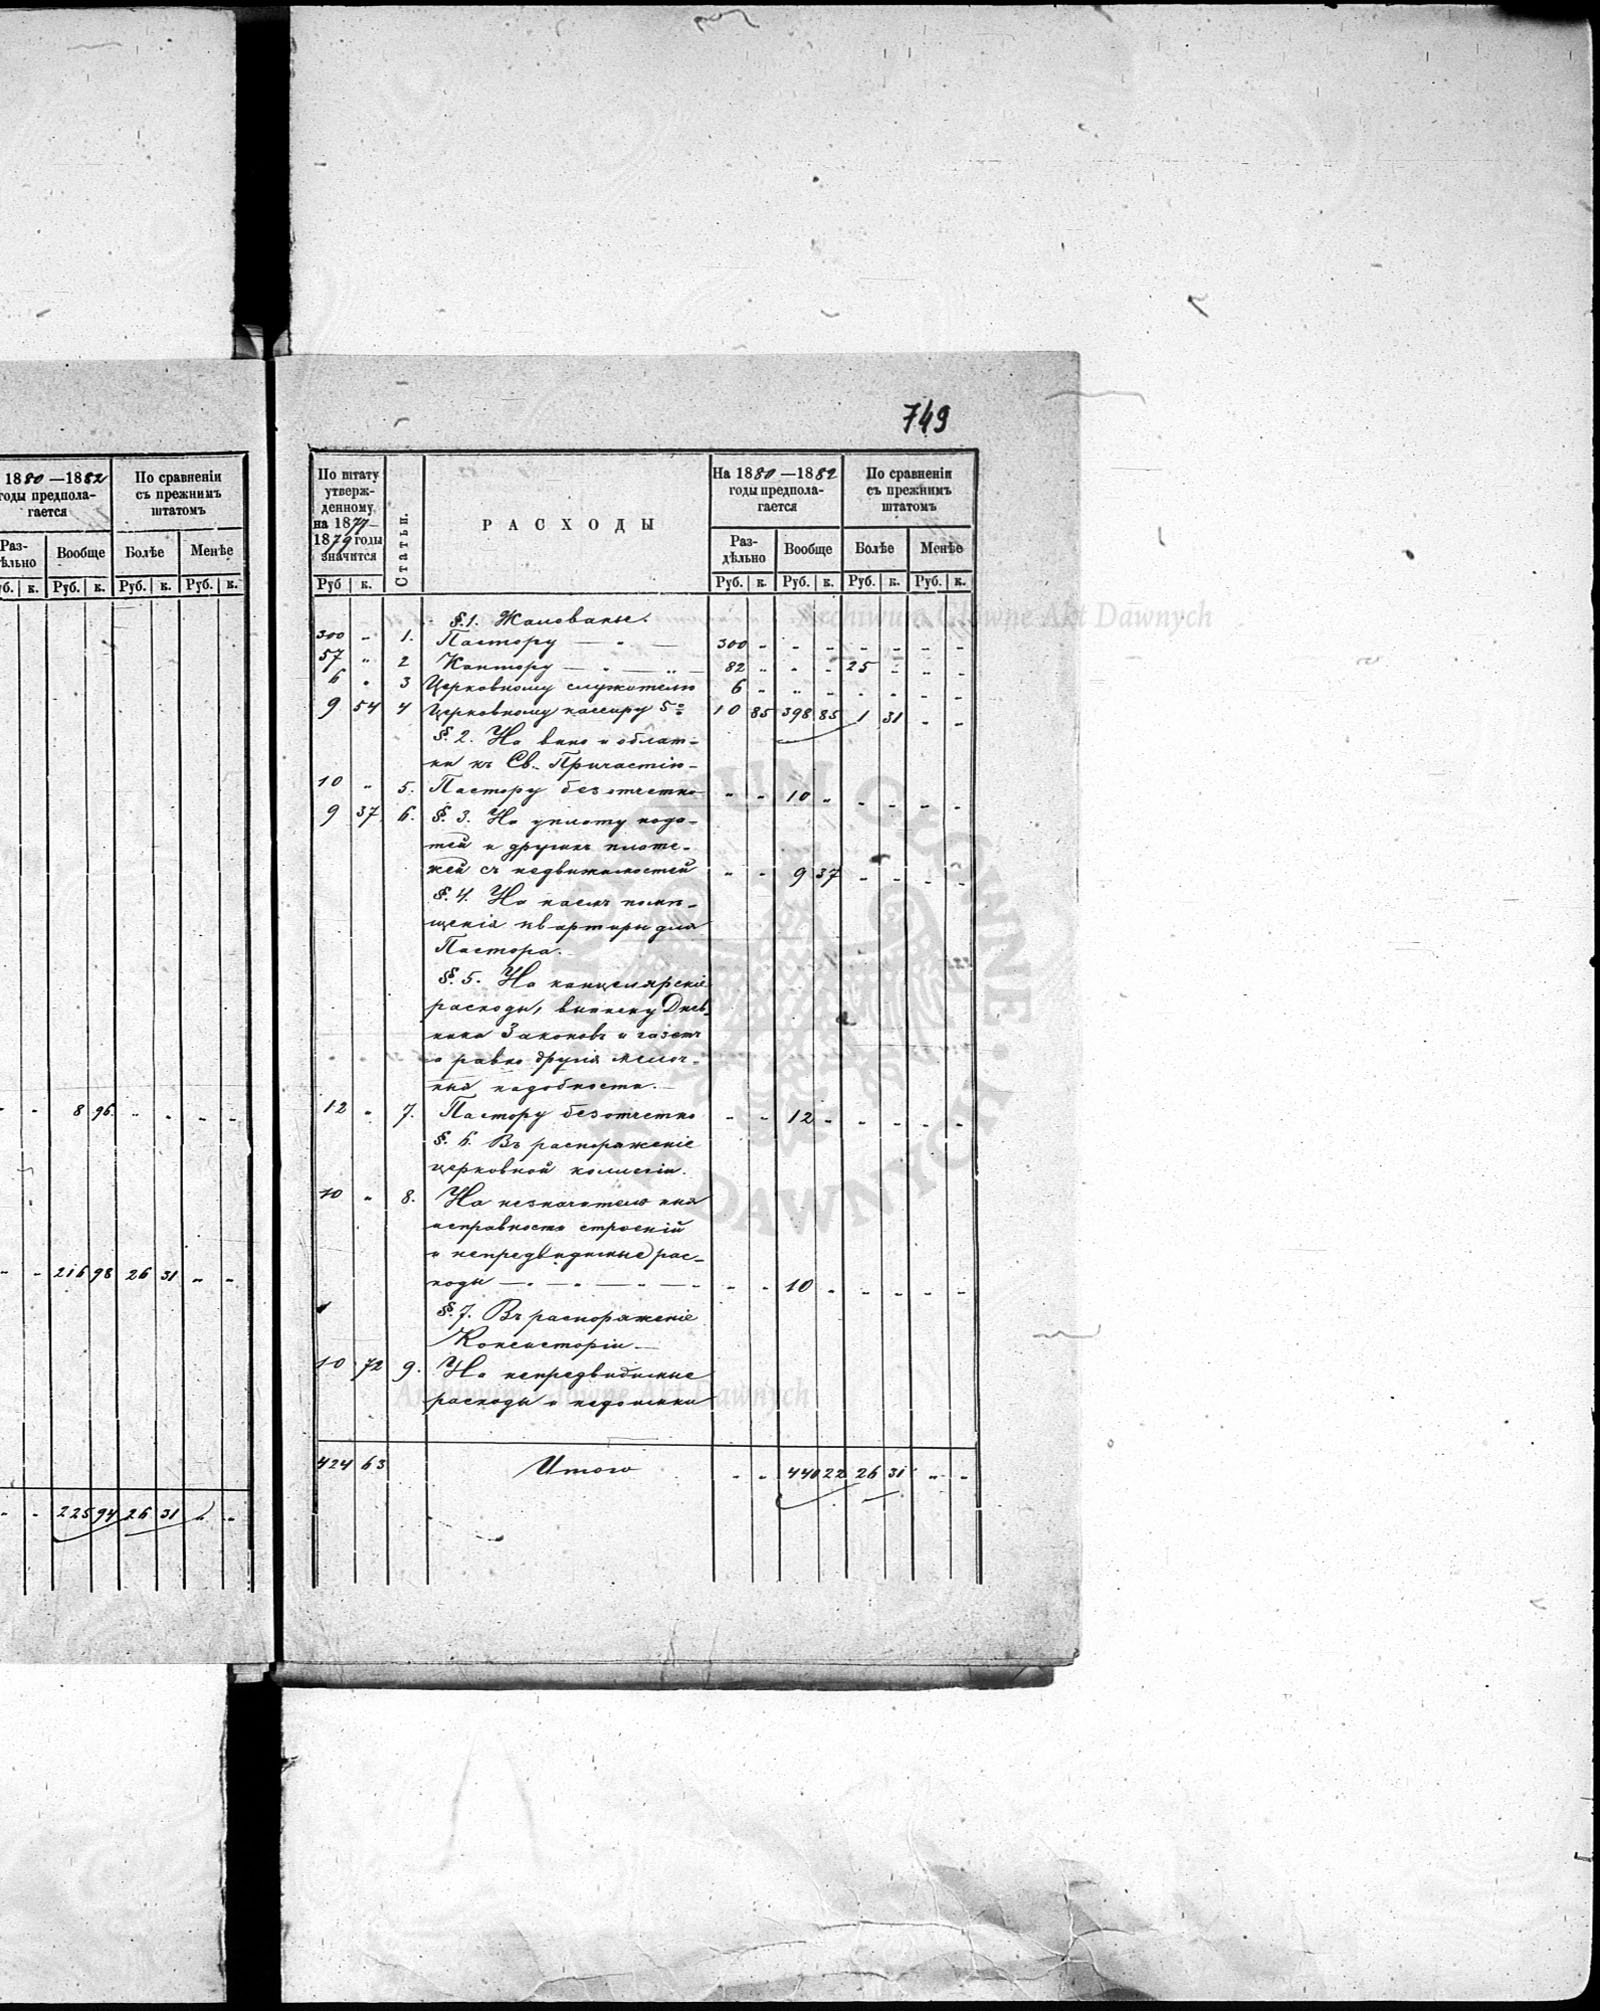 1880—1882
годы предпола-
гается
По сравненіи
съ прежнимъ
штатомъ
Раз-
дѣльно
Вообще
Болѣе
Менѣе
Руб. к. Руб. к. Руб. к. Руб. к.
" " 8 96 " " " "
" " 216 98 26 31 " "
" " 225 94 26 31 " "
749
По штату
утверж-
денному
на 1877—
1879 годы
значится
Статьи.
РАСХОДЫ
На 1880—1882
годы предпола-
гается
По сравненіи
съ прежнимъ
штатомъ
Раз-
дѣльно
Вообще
Болѣе
Менѣе
Руб к. Руб. к. Руб. к. Руб. к. Руб. к.
§.1. Жалованье.
300 " 1. Пастору — " — 300 " " " " " " "
57 " 2 Кантору — " — " — 82 " " " 25 " " "
6 " 3 Церковному служителю 6 " " " " " " "
9 54 4 Церковному кассиру 5% 10 85 398 85 1 31 " "
§. 2. На вино и облат-
ки къ Св. Причастію
10 " 5. Пастору безотчетно " " 10 " " " " "
9 37 6. §. 3. На уплату пода-
тей и другихъ плате-
жей съ недвижимостей " " 9 37 " " " "
§. 4. На наемъ помѣ-
щенія квартиры для
Пастора.
§. 5. На канцелярскіе
расходы, выписку Днев-
ника Законовъ и газетъ
а равно другія мелоч-
ныя надобности.—
12 " 7. Пастору безотчетно " " 12 " " " " "
§. 6. Въ распоряженіе
церковной коллегіи.
10 " 8. На незначительныя
исправности строеній
и непредвидимые рас-
ходы — " — " — " — " " " 10 " " " " "
§. 7. Въ распоряженіе
Консисторіи—
10 72 9. На непредвидимые
расходы и недоимки
424 63 Итого " " 440 22 26 31 " "
Archiwum Główne Akt Dawnych
Archiwum Główne Akt Dawnych
ARCHIWUM GŁÓWNE AKT DAWNYCH